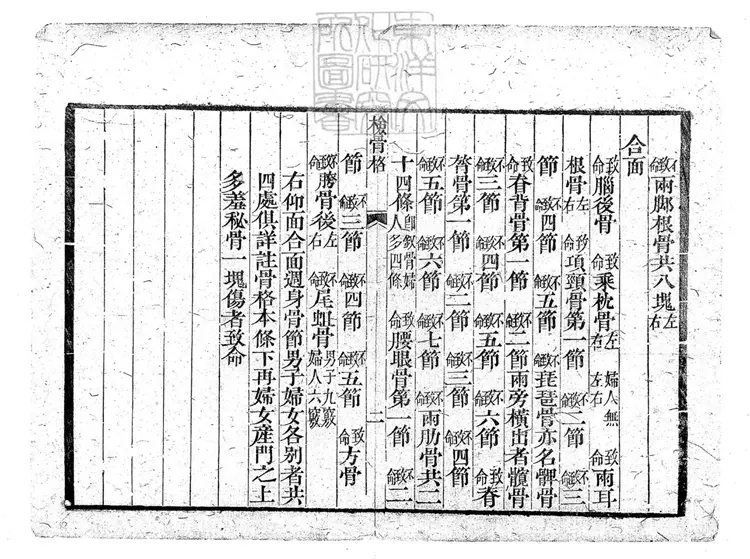 不致命兩腳根骨共八塊左右
合面
致命腦後骨致命乘枕骨左右婦人無左右致命兩耳
根骨左右致命項頸骨第一節不致命二節不致命三
節不致命四節不致命五節不致命琵琶骨亦名髀骨
致命脊背骨第一節不致命二節兩旁橫出者髖骨
不致命三節不致命四節不致命五節不致命六節致命脊
膂骨第一節不致命二節不致命三節不致命四節
不致命五節不致命六節不致命七節不致命兩肋骨共二
十四條即釵骨婦人多四條致命腰眼骨第一節不致命二
檢骨格 二
節不致命三節不致命四節不致命五節致命方骨
不致命胯骨後左右不致命尾蛆骨男子九竅婦人六竅
右仰面合面週身骨節男子婦女各别者共
四處俱詳註骨格本條下再婦女產門之上
多羞秘骨一塊傷者致命